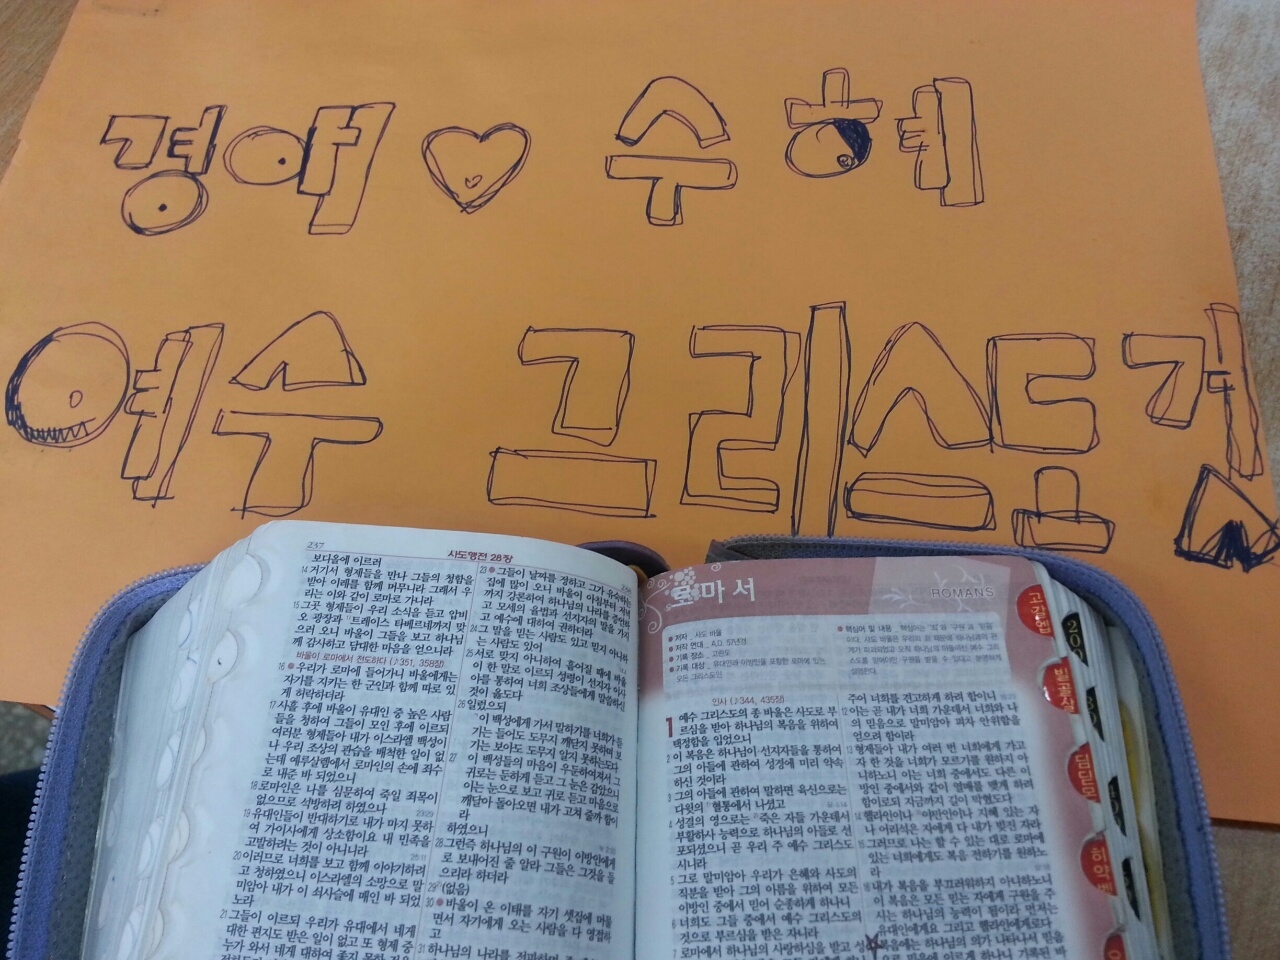 경애 ♡ 수혜
예수 그리스도 김
237
사도행전 28장
보다음에 이르러
14 거기서 형제들을 만나 그들의 청함을
받아 이레를 함께 머무니라 그래서 우
리는 이와 같이 로마로 가니라
15 그 곳 형제들이 우리 소식을 듣고 압비
오 광장과 트레이스 타베르네까지 맞
으러 오니 바울이 그들을 보고 하나님
께 감사하고 담대한 마음을 얻으니라
바울이 로마에서 전도하다 (♪351, 358장)
16 우리가 로마에 들어가니 바울에게는
자기를 지키는 한 군인과 함께 따로 있
게 허락하더라
17 사흘 후에 바울이 유대인 중 높은 사람
들을 청하여 그들이 모인 후에 이르되
여러분 형제들아 내가 이스라엘 백성이
나 우리 조상의 관습을 배척한 일이 없
는데 예루살렘에서 로마인의 손에 죄수
로 내준 바 되었으니
18 로마인은 나를 심문하여 죽일 죄목이
없으므로 석방하려 하였으나
19 유대인들이 반대하기로 내가 마지 못하
여 가이사에게 상소함이요 내 민족을
고발하려는 것이 아니니라
20 이러므로 너희를 보고 함께 이야기하려
고 청하였으니 이스라엘의 소망으로 말
미암아 내가 이 쇠사슬에 매인 바 되었
노라
21 그들이 이르되 우리가 유대에서 네게
대한 편지도 받은 일이 없고 또 형제 중
누가 와서 네게 대하여 좋지 못한
23 그들이 날짜를 정하고 그가 유숙하는
집에 많이 오니 바울이 아침부터 저녁
까지 강론하여 하나님의 나라를 증언하
고 모세의 율법과 선지자의 말을 가지
고 예수에 대하여 권하더라
24 그 말을 믿는 사람도 있고 믿지 아니하
는 사람도 있어
25 서로 맞지 아니하여 흩어질 때에 바울
이 한 말로 이르되 성령이 선지자 이사
야를 통하여 너희 조상들에게 말씀하신
것이 옳도다
26 일렀으되
이 백성에게 가서 말하기를 너희가 듣
기는 들어도 도무지 깨닫지 못하며 보
기는 보아도 도무지 알지 못하는도다
27 이 백성들의 마음이 우둔하여져서 그
귀로는 둔하게 듣고 그 눈은 감았으니
이는 눈으로 보고 귀로 듣고 마음으로
깨달아 돌아오면 내가 고쳐 줄까 함이
라
하였으니
28 그런즉 하나님의 이 구원이 이방인에게
로 보내어진 줄 알라 그들은 그것을 들
으리라 하더라
29 (없음)
30 바울이 온 이태를 자기 셋집에 머물
면서 자기에게 오는 사람을 다 영접하
고
31 하나님의 나라를 전파하며
로마서
ROMANS
저자 _ 사도 바울
저작 연대 _ A.D. 57년경
기록 장소 _ 고린도
기록 대상 _ 유대인과 이방인을 포함한 로마에 있는
모든 그리스도인
핵심어 및 내용
인사 (♪344, 435장)
1 예수 그리스도의 종 바울은 사도로 부
르심을 받아 하나님의 복음을 위하여
택정함을 입었으니
2 이 복음은 하나님이 선지자들을 통하여
그의 아들에 관하여 성경에 미리 약속
하신 것이라
3 그의 아들에 관하여 말하면 육신으로는
다윗의 혈통에서 나셨고
4 성결의 영으로는 죽은 자들 가운데서
부활하사 능력으로 하나님의 아들로 선
포되셨으니 곧 우리 주 예수 그리스도
시니라
5 그로 말미암아 우리가 은혜와 사도의
직분을 받아 그의 이름을 위하여 모든
이방인 중에서 믿어 순종하게 하나니
6 너희도 그들 중에서 예수 그리스도의
것으로 부르심을 받은 자니라
7 로마에서 하나님의 사랑하심을 받고
주어 너희를 견고하게 하려 함이니
12 이는 곧 내가 너희 가운데서 너희와 나
의 믿음으로 말미암아 피차 안위함을
얻으려 함이라
13 형제들아 내가 여러 번 너희에게 가고
자 한 것을 너희가 모르기를 원하지 아
니하노니 이는 너희 중에서도 다른 이
방인 중에서와 같이 열매를 맺게 하려
함이로되 지금까지 길이 막혔도다
14 헬라인이나 야만인이나 지혜 있는 자
나 어리석은 자에게 다 내가 빚진 자라
15 그러므로 나는 할 수 있는 대로 로마에
있는 너희에게도 복음 전하기를 원하노
라
16 내가 복음을 부끄러워하지 아니하노니
이 복음은 모든 믿는 자에게 구원을 주
시는 하나님의 능력이 됨이라 먼저는
유대인에게요 그리고 헬라인에게로다
17 복음에는 하나님의 의가 나타나서 믿음
으로 믿음에 이르게 하나니 기록된 바
고갈엡
빌골살
딤딛몬
히약벧